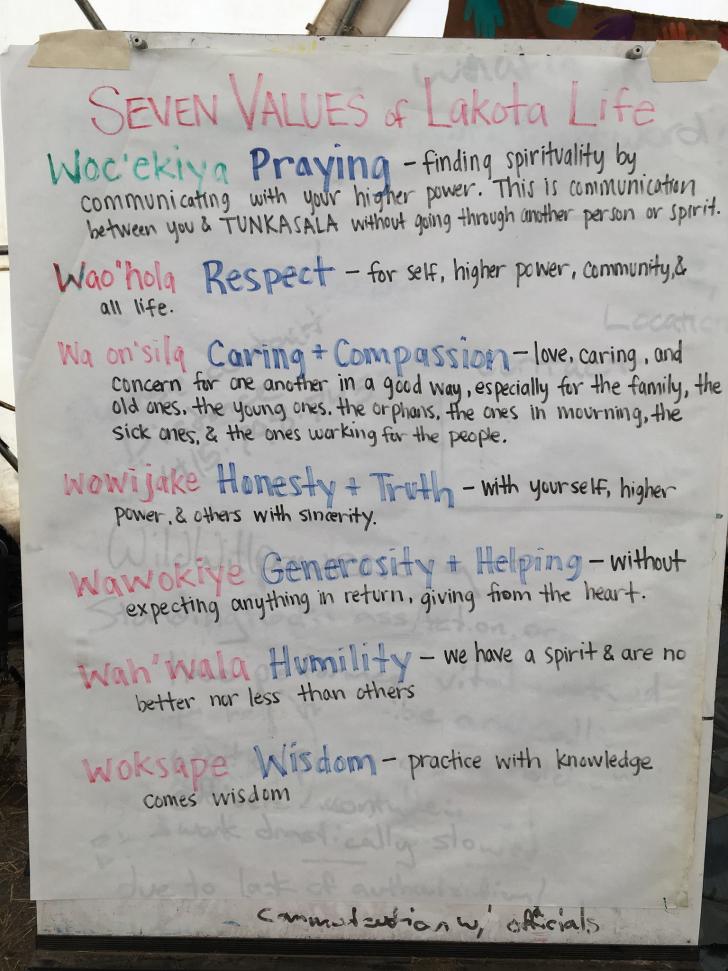 SEVEN VALUES of Lakota Life
Woc'ekiya Praying – finding spirituality by
communicating with your higher power. This is communication
between you & TUNKASALA without going through another person or spirit.
Wao'hola Respect – for self, higher power, community, &
all life.
Wa on'sila Caring + Compassion – love, caring, and
concern for one another in a good way, especially for the family, the
old ones, the young ones, the orphans, the ones in mourning, the
sick ones, & the ones working for the people.
Wowijake Honesty + Truth – with yourself, higher
power, & others with sincerity.
Wawokiye Generosity + Helping – without
expecting anything in return, giving from the heart.
Wah'wala Humility – we have a spirit & are no
better nor less than others
Woksape Wisdom – practice with knowledge
comes wisdom
due to lack of
w/ officials